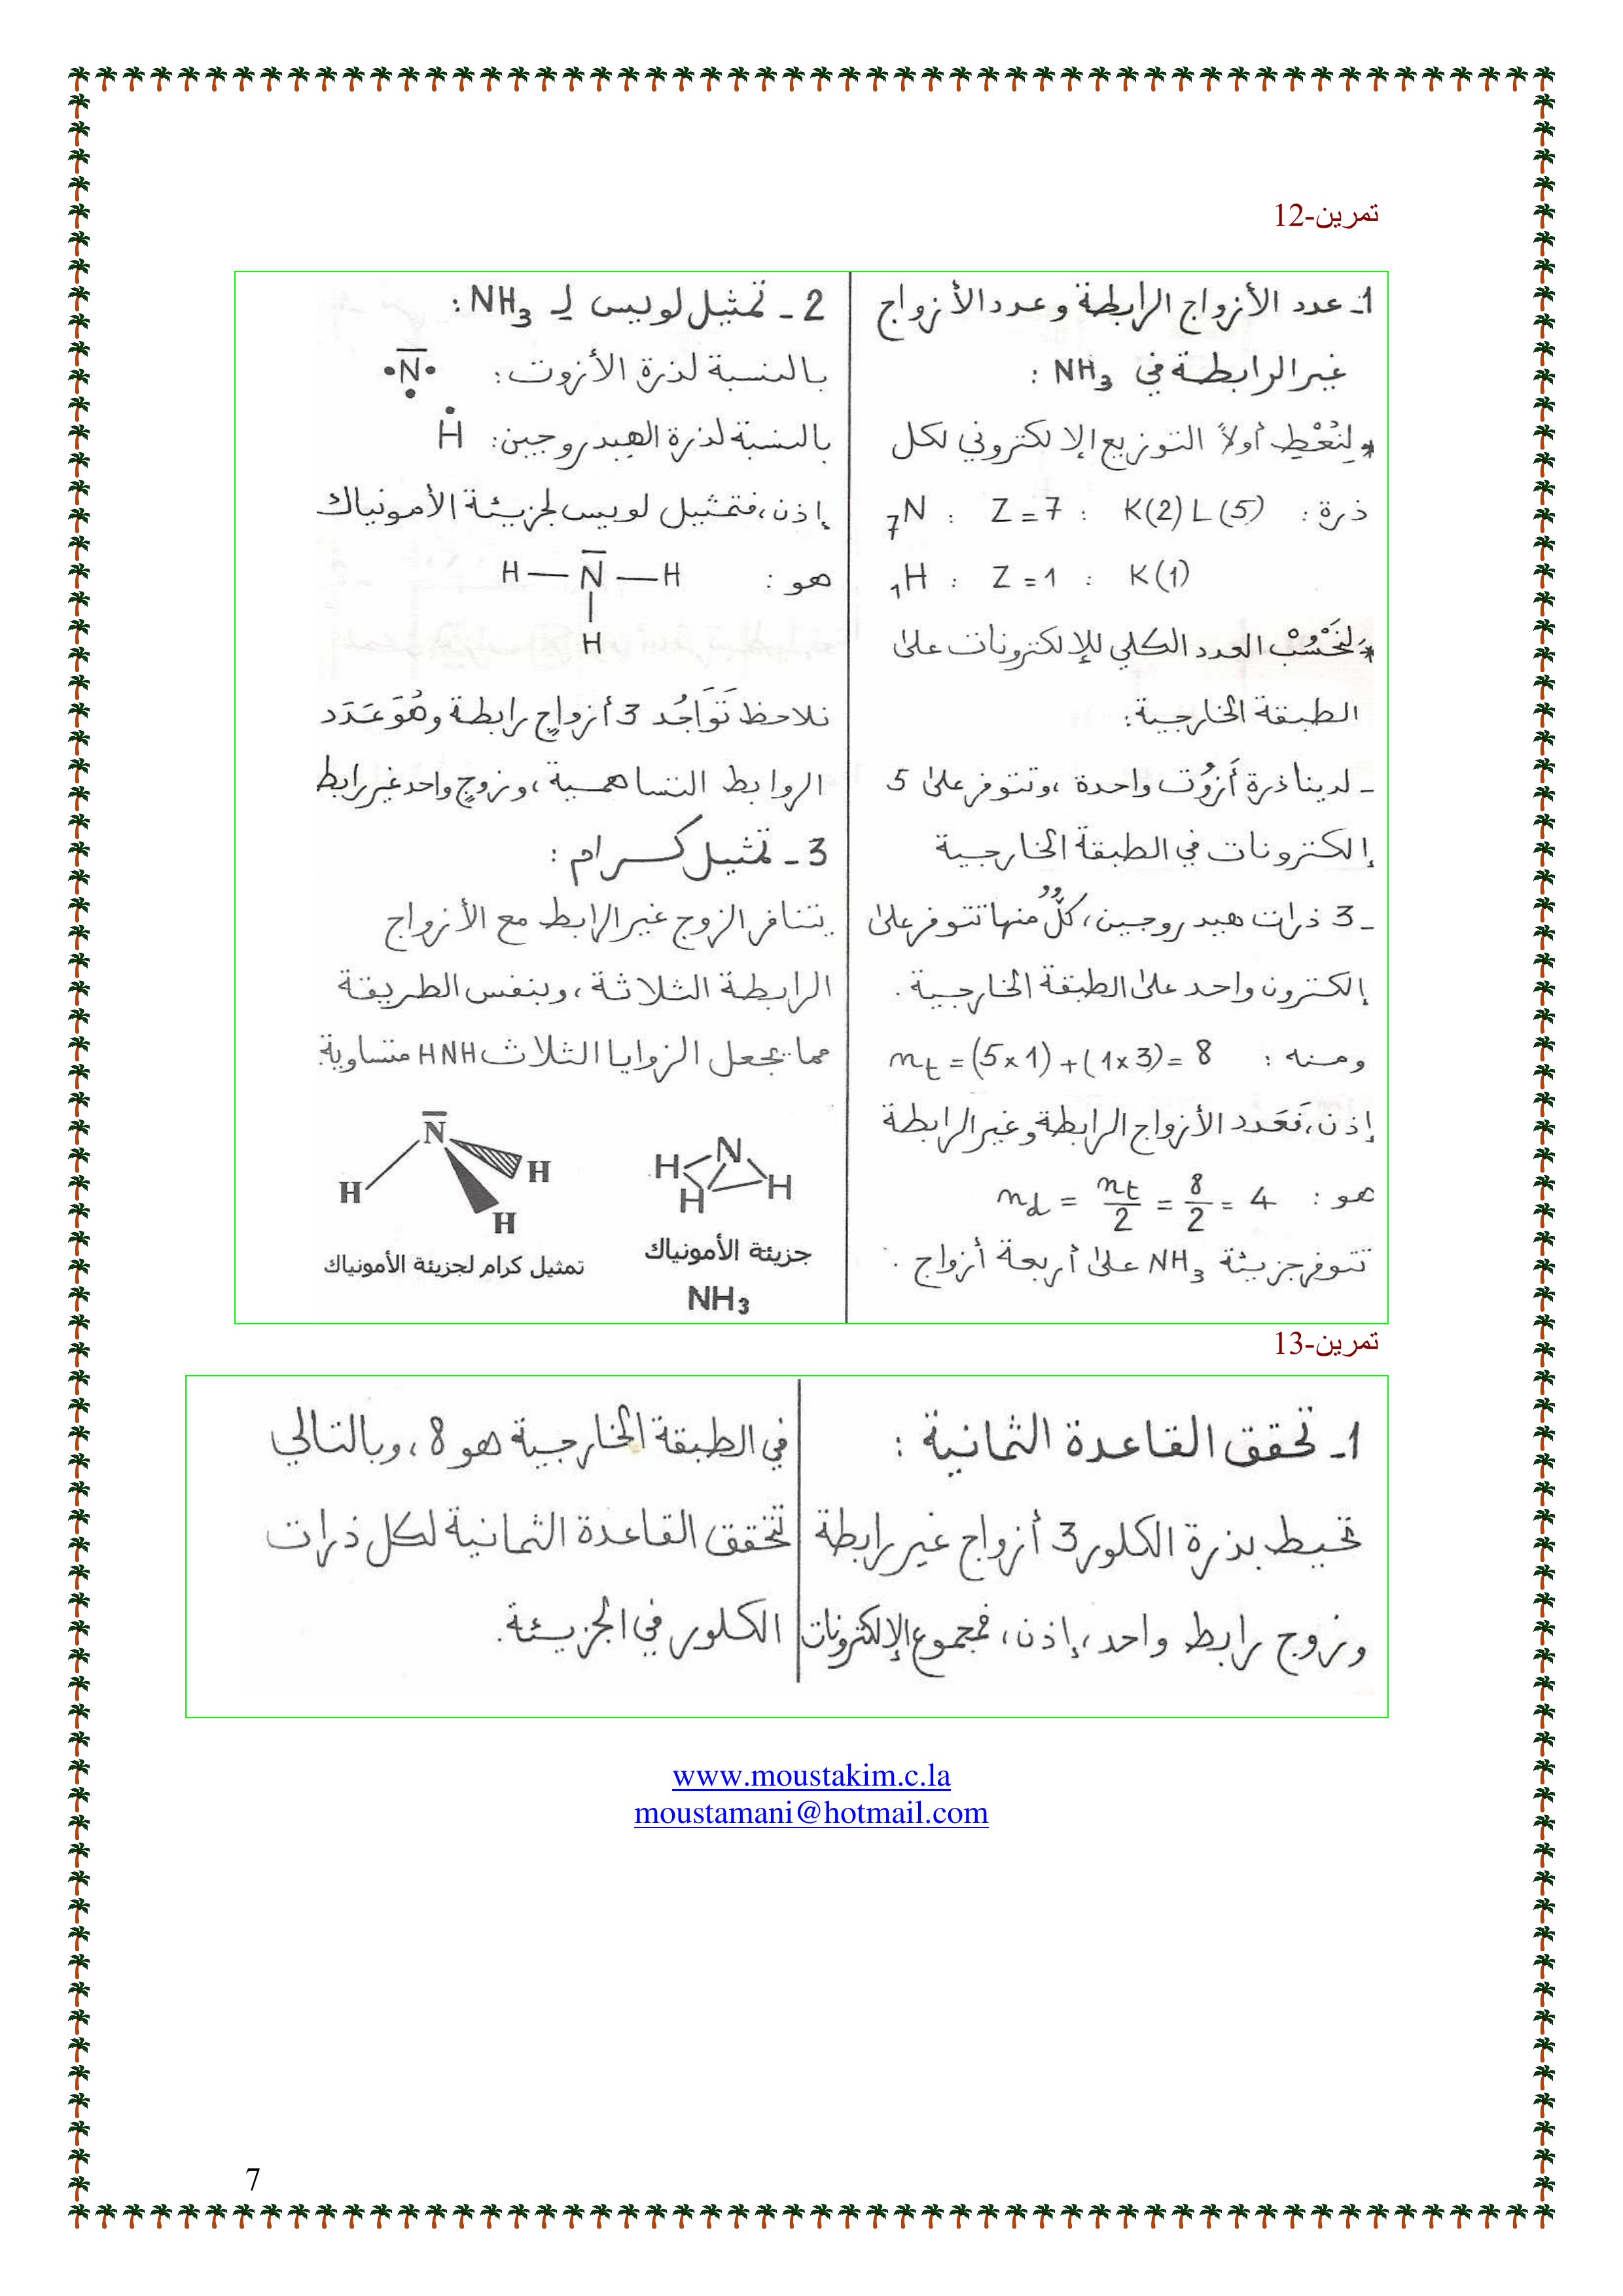 تمرين-12
1ـ عدد الأزواج الرابطة وعدد الأزواج
غير الرابطة في NH3 :
* لِنُعْطِ أولاً التوزيع الإلكتروني لكل
ذرة : 7N : Z=7 : K(2) L(5)
1H : Z=1 : K(1)
* لِنَحْسُبْ العدد الكلي للإلكترونات على
الطبقة الخارجية :
ـ لدينا ذرة أزوت واحدة ، وتتوفر على 5
إلكترونات في الطبقة الخارجية
ـ 3 ذرات هيدروجين ، كلٌّ منها تتوفر على
إلكترون واحد على الطبقة الخارجية .
ومنه : nt = (5×1) + (1×3) = 8
إذن ، فَعَدد الأزواج الرابطة وغير الرابطة
هو : nd = nt/2 = 8/2 = 4
تتوفر جزيئة NH3 على أربعة أزواج .
2 ـ تمثيل لويس لـ NH3 :
بالنسبة لذرة الأزوت : •N•
بالنسبة لذرة الهيدروجين: H
إذن ، فتمثيل لويس لجزيئة الأمونياك
هو : H — N — H
H
نلاحظ تَوَاجُد 3 أزواجٍ رابطة وهُوَ عَدَد
الروابط التساهمية ، وزوجٍ واحد غير رابط
3 ـ تمثيل كرام :
يتنافر الزوج غير الرابط مع الأزواج
الرابطة الثلاثة ، وبنفس الطريقة
مما يجعل الزوايا الثلاث HNH متساوية.
N
H
H
H
تمثيل كرام لجزيئة الأمونياك
N
H
H
H
جزيئة الأمونياك
NH3
تمرين-13
1ـ تحقق القاعدة الثمانية :
تحيط بذرة الكلور 3 أزواج غير رابطة
وزوج رابط واحد ، إذن ، فمجموع الإلكترونات
في الطبقة الخارجية هو 8 ، وبالتالي
تتحقق القاعدة الثمانية لكل ذرات
الكلور في الجزيئة .
www.moustakim.c.la
moustamani@hotmail.com
7